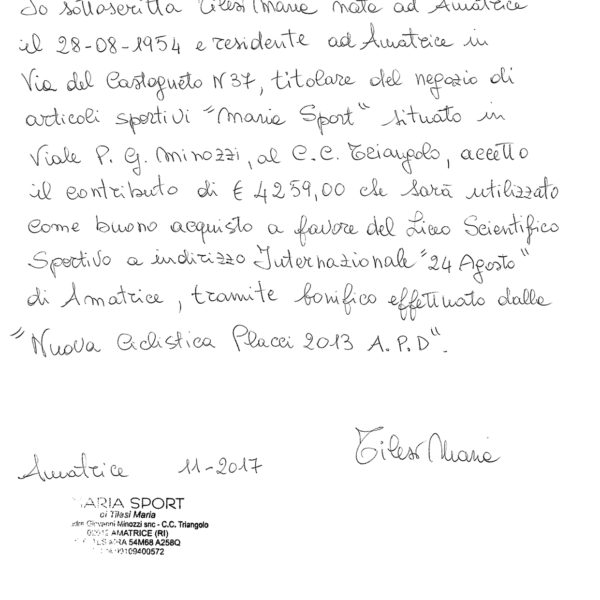 Io sottoscritta Tilesi Maria nata ad Amatrice
il 28-08-1954 e residente ad Amatrice in
Via del Castagneto N 37, titolare del negozio di
articoli sportivi "Maria Sport" situato in
Viale P. G. Minozzi, al C.C. Triangolo, accetto
il contributo di € 4259,00 che sarà utilizzato
come buono acquisto a favore del Liceo Scientifico
Sportivo a indirizzo Internazionale "24 Agosto"
di Amatrice, tramite bonifico effettuato dalla
"Nuova Ciclistica Placci 2013 A.P.D".
Tilesi Maria
Amatrice 11-2017
MARIA SPORT
di Tilasi Maria
Giovanni Minozzi snc - C.C. Triangolo
AMATRICE (RI)
54M68 A258Q
09400572